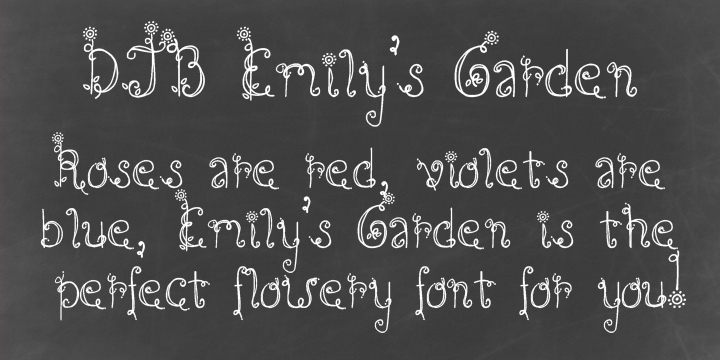 DJB Emily's Garden
Roses are red, violets are
blue, Emily's Garden is the
perfect flowery font for you!